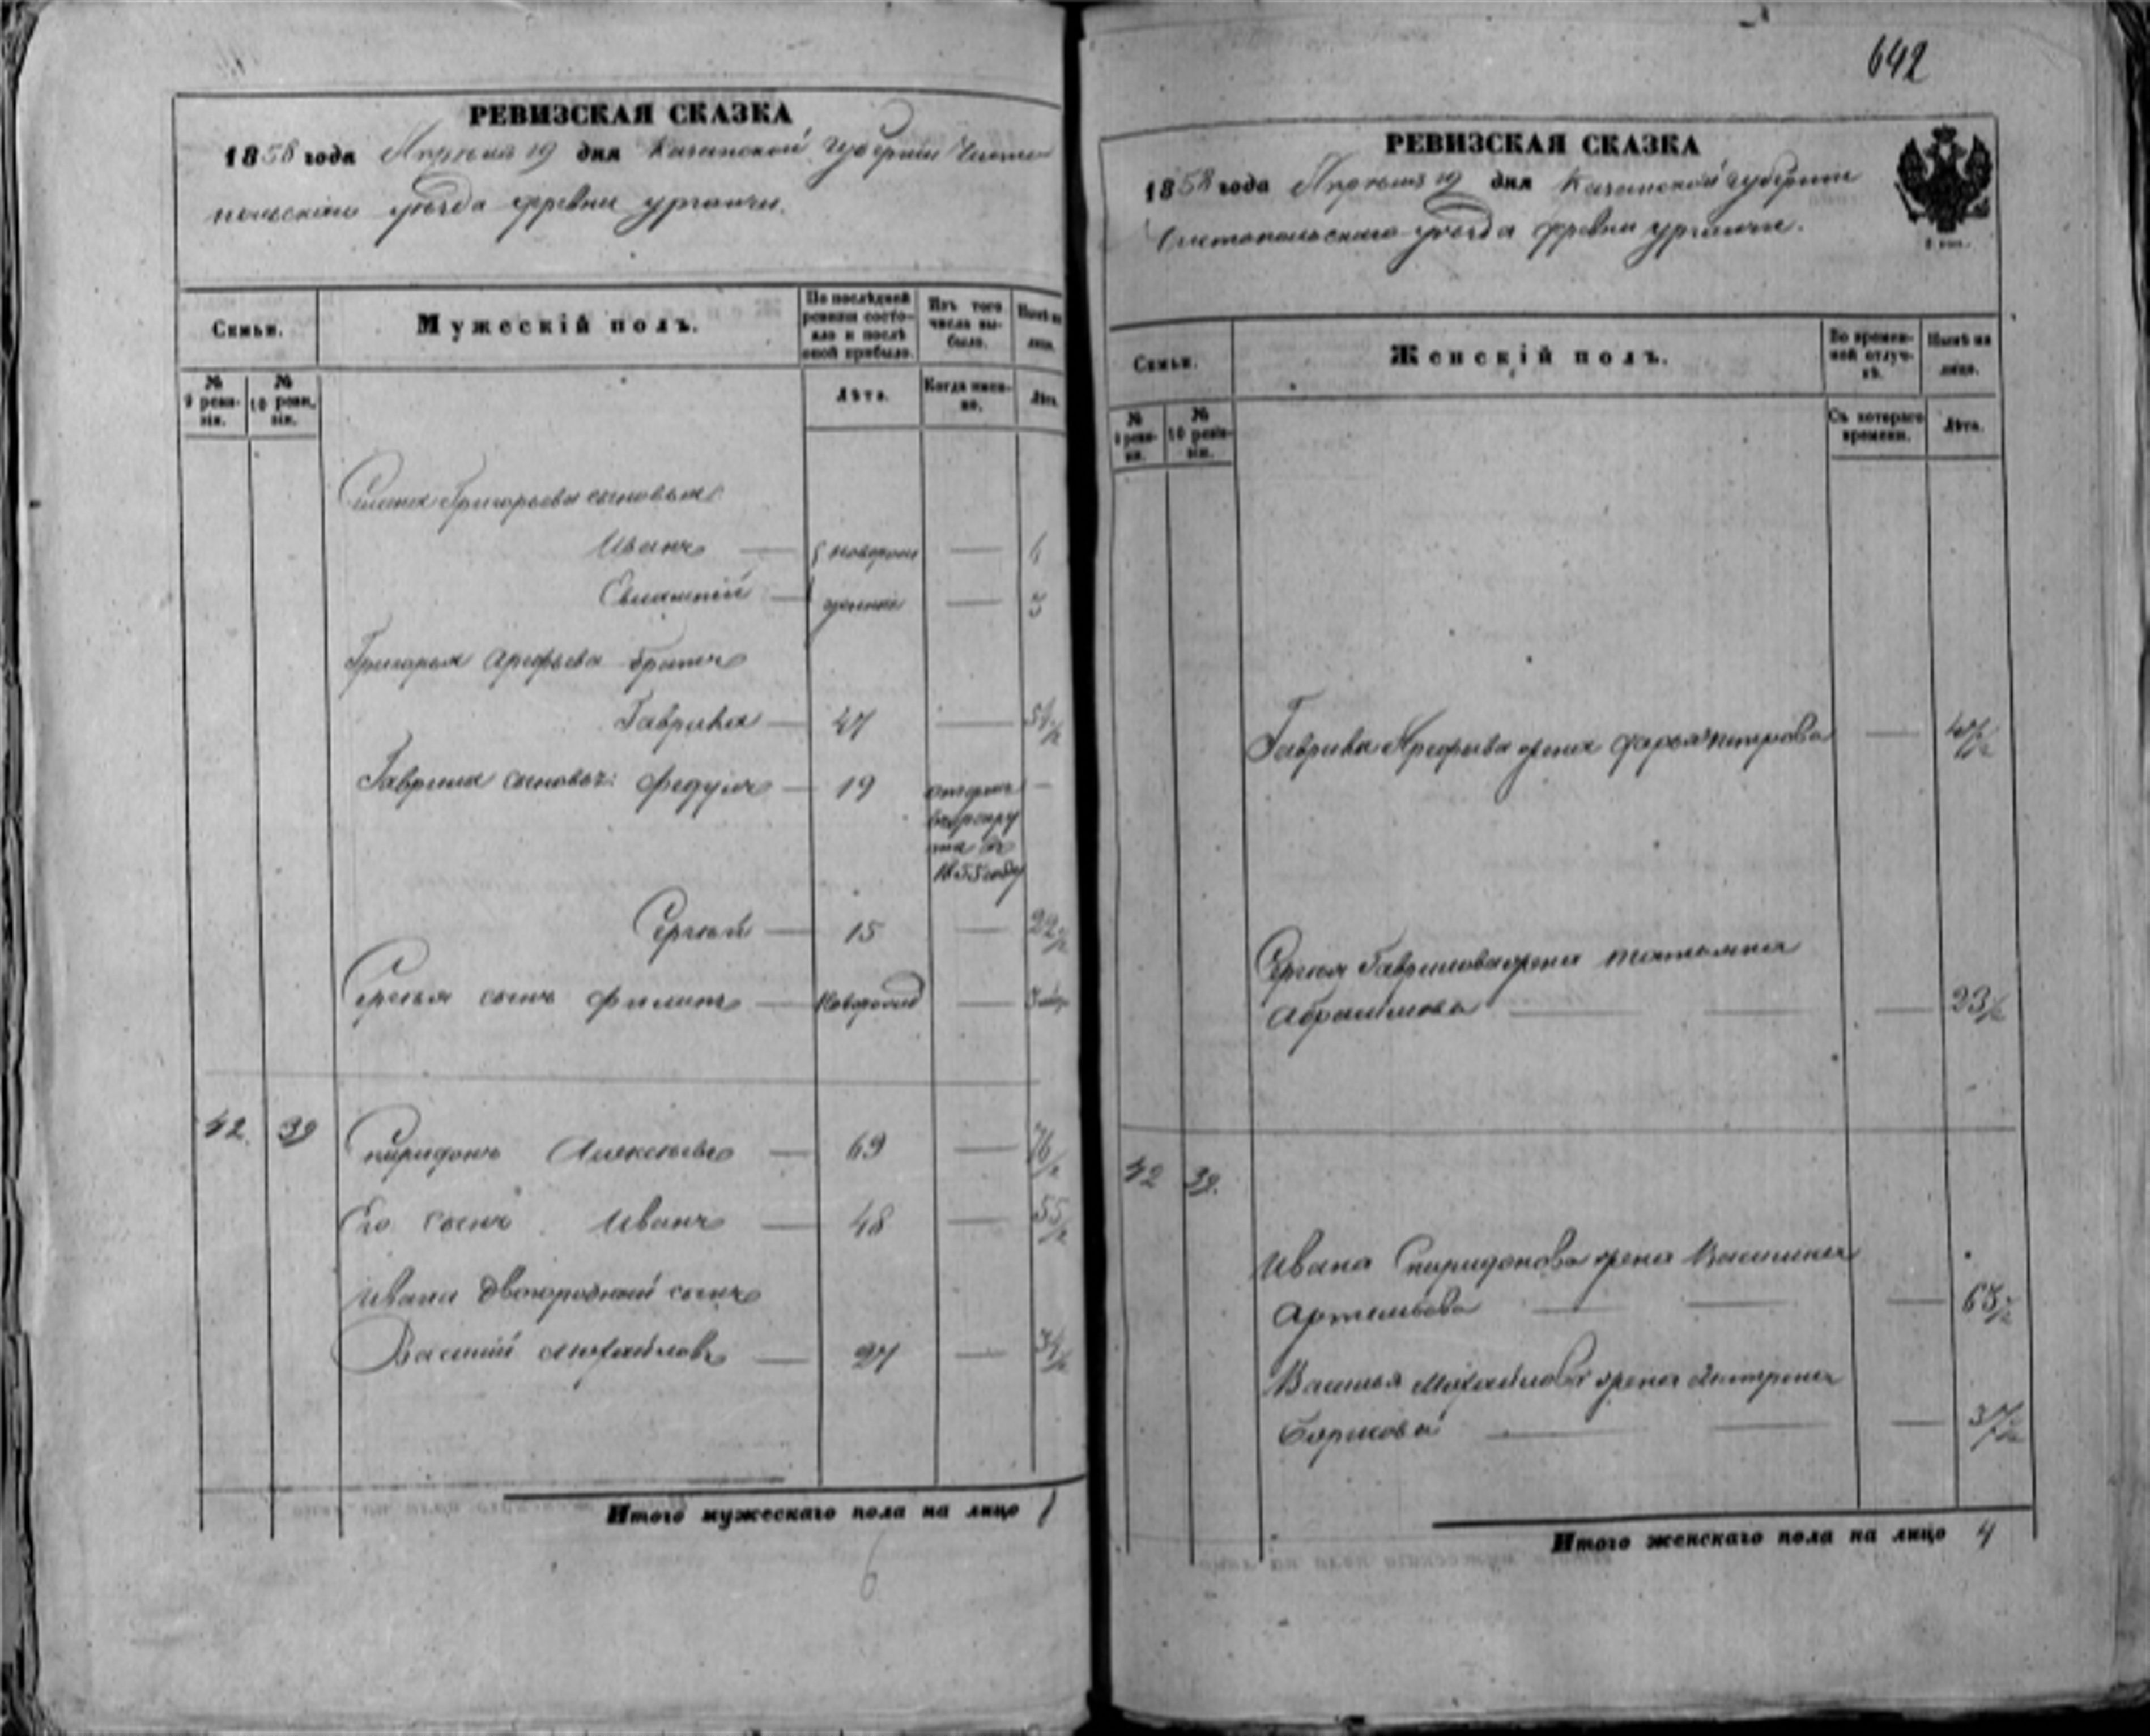 РЕВИЗСКАЯ СКАЗКА
1858 года Апреля 19 дня Казанской губернии Чисто
польскаго уезда деревни
Семьи.
Мужескій полъ.
По послѣдней ревизіи состояло и послѣ оной прибыло.
Изъ того числа выбыло.
Нынѣ на лицо.
№ 9 ревизіи.
№ 10 ревизіи.
Лѣта.
Когда именно.
Лѣта.
Григорьева сыновья
Иванъ — новорож — 6
— денные — 3
Григорья Арефьева братъ
Гаврила — 47 — 54 1/2
Гаврила сыновья: Федулъ — 19 —
в рекру
та въ
1855 году
Сергей — 15 — 22 1/2
Сергея сынъ Филипъ — Новорожд —
42 39 Спиридонъ Алексеевъ — 69 — 76 1/2
Его сынъ Иванъ — 48 — 55 1/2
Ивана двоюродный сынъ
Василий Михайловъ — 27 — 34 1/2
Итого мужескаго пола на лицо
6
642
РЕВИЗСКАЯ СКАЗКА
1858 года Апреля 19 дня Казанской губернии
Чистопольскаго уезда деревни
Семьи.
Женскій полъ.
Во временной отлучкѣ.
Нынѣ на лицо.
№ 9 ревизіи.
№ 10 ревизіи.
Съ котораго времени.
Лѣта.
Гаврила Арефьева жена Дарья Петрова — 47 1/2
Сергея Гаврилова жена Татьяна
— 23 1/2
42 39.
Ивана Спиридонова жена Василиса
Артемьева — 63 1/2
Василья Михайлова жена
Борисова — 37 1/2
Итого женскаго пола на лицо 4